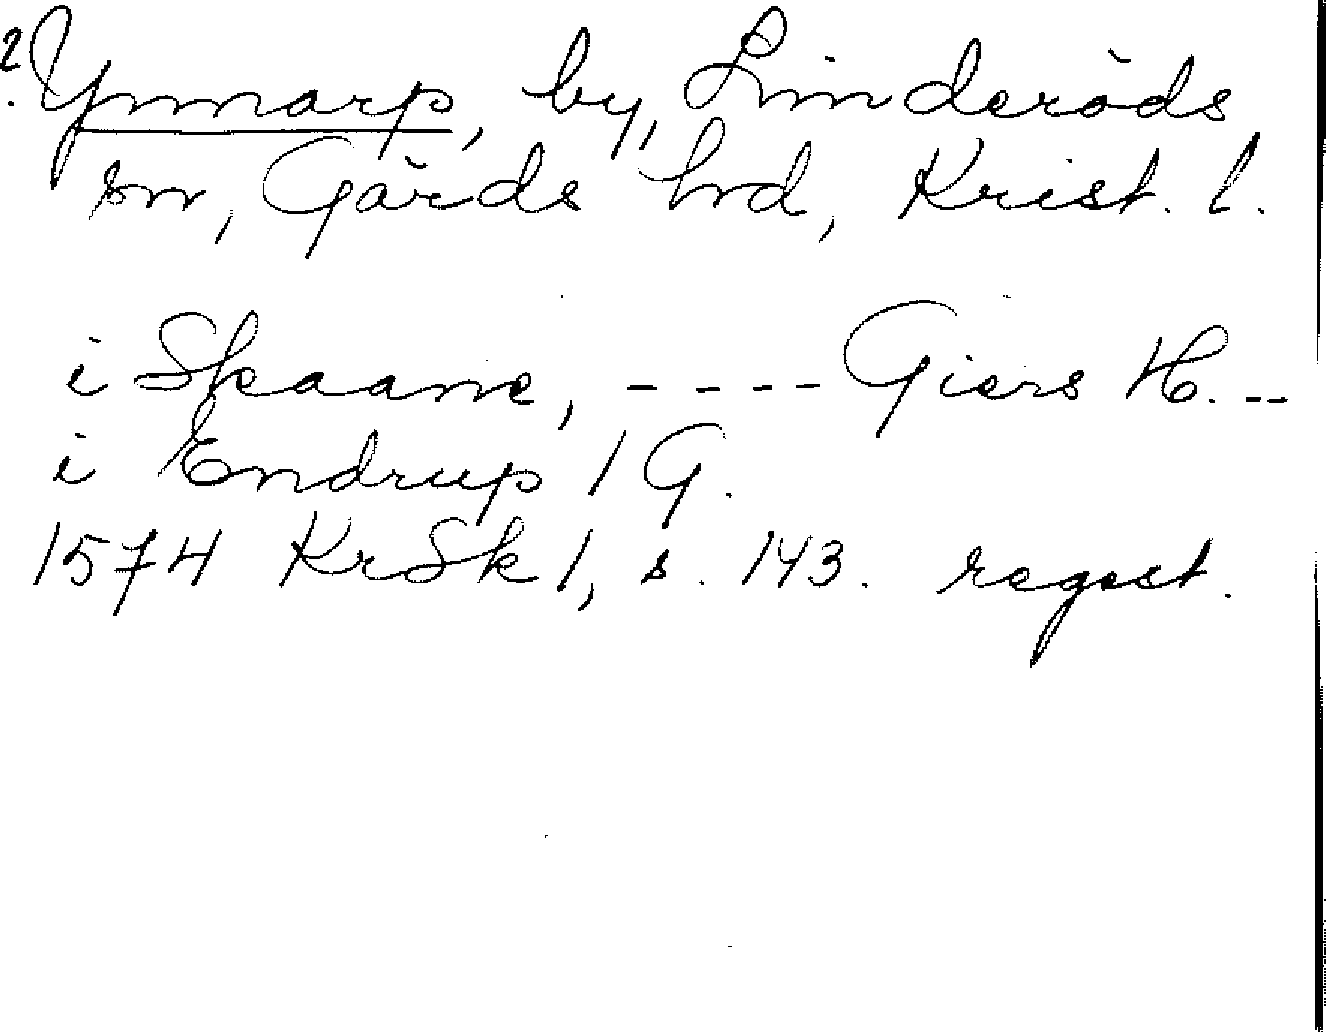 ? Ynmarp, by, Linderöds
sn, Gärds hd, Krist. l.
i Skaane, ---- Giers H. --
i Endrup / G.
1574 KrSk 1, s. 143. regest.